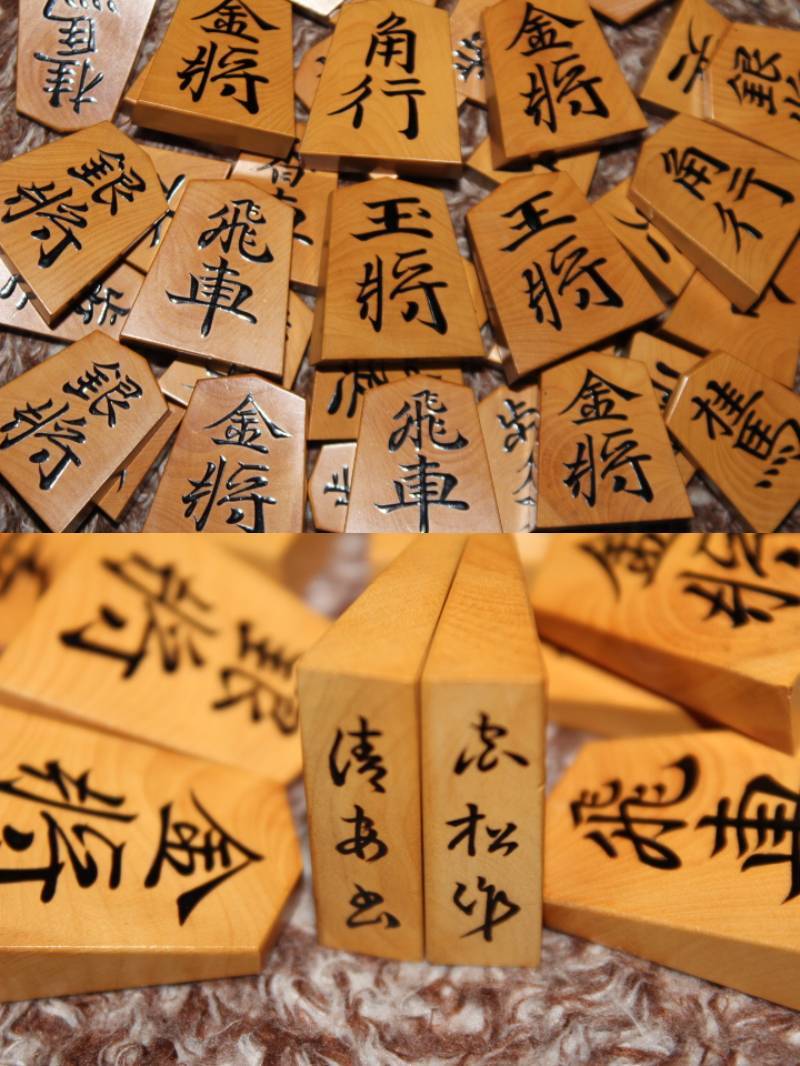 桂馬
金将
角行
金将
銀
銀将
飛車
玉将
王将
角行
銀将
金将
飛車
金将
桂馬
歩
銀将
金将
飛車
清安書
宏松作